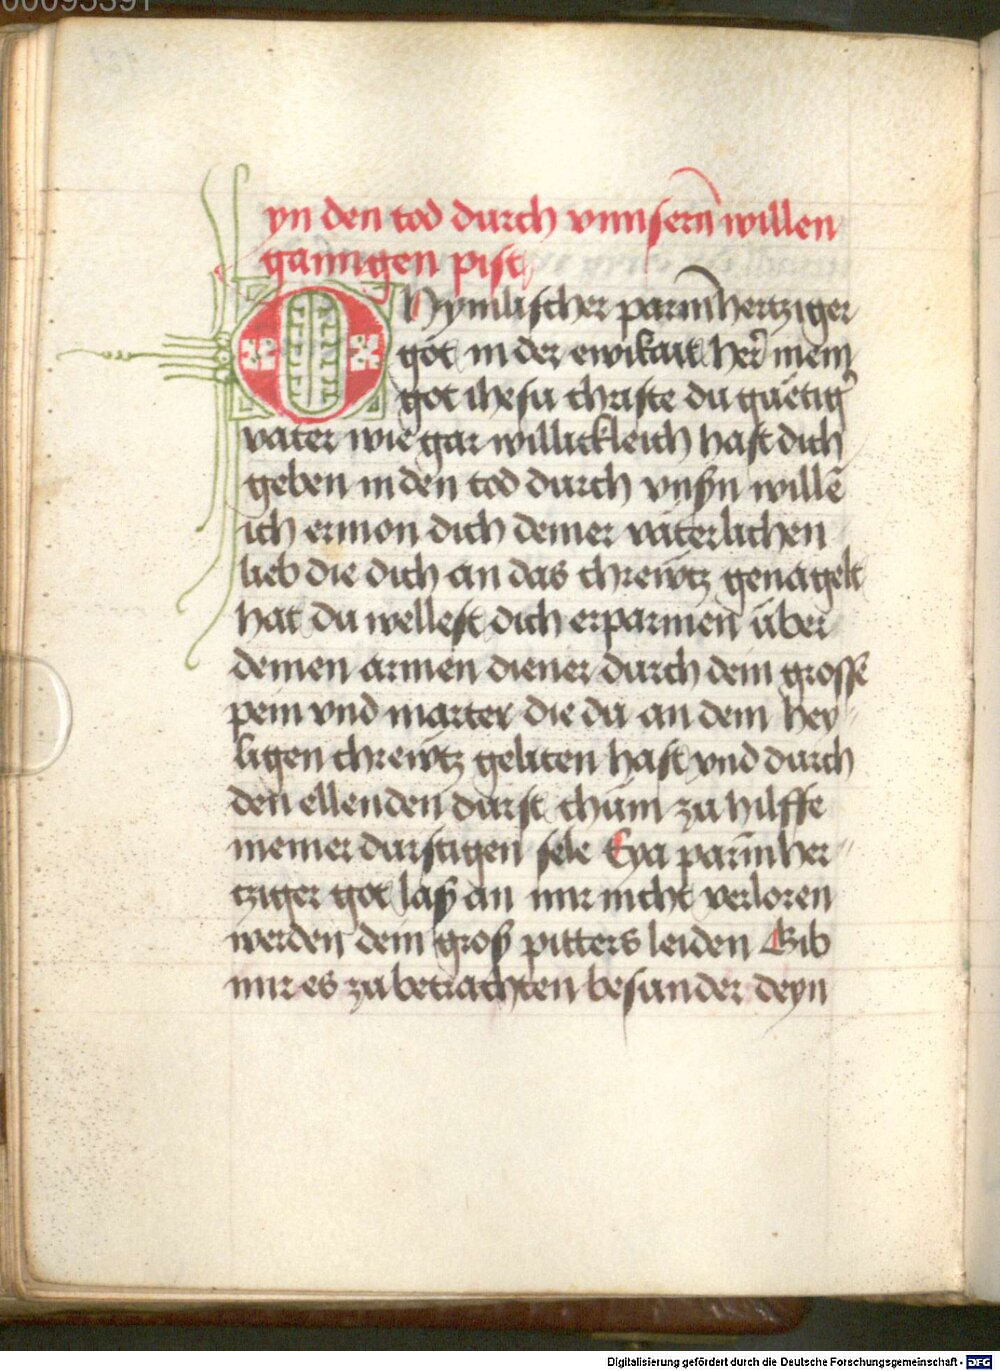 00095391
yn den tod durch vnnsern̄ willen
ganngen pist
O Hymlischer parm̄hertziger
got in der ewikait her̄ mein
got ihesu christe du guētig̉
vater wie gar willickleich hast dich
geben in den tod durch vnsṅ willē
ich ermon dich deiner väterlichen
lieb die dich an das chrewtz genagelt
hat du wellest dich erparmen über
deinen armen diener durch dein grosse
pein vnd marter die du an dem hey-
ligen chrewtz geliten hast vnd durch
den ellenden durst chum zu hilffe
meiner durstigen sele Eya parm̄her-
tziger got laß an mir nicht verloren
werden dein groß pitters leiden Gib
mir es zu betrachten besunder deyn
Digitalisierung gefördert durch die Deutsche Forschungsgemeinschaft - DFG